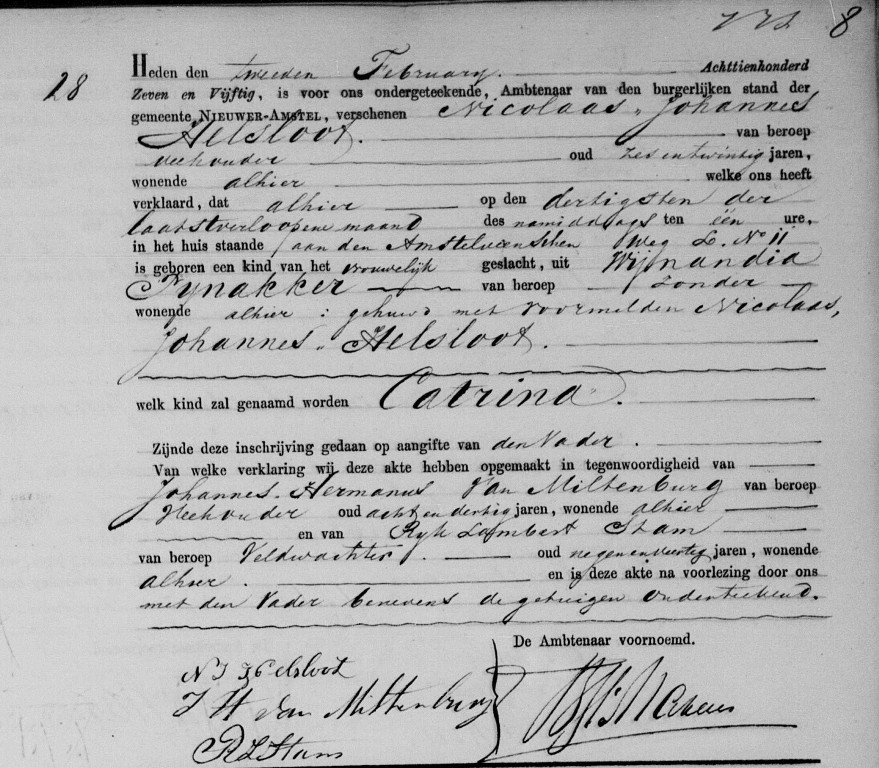 8
28
Heden den tweeden February. Achttienhonderd
Zeven en Vijftig, is voor ons ondergeteekende, Ambtenaar van den burgerlijken stand der
gemeente NIEUWER-AMSTEL, verschenen Nicolaas, Johannes
Helsloot. van beroep
veehouder oud zes en twintig jaren,
wonende alhier welke ons heeft
verklaard, dat alhier op den dertigsten der
laatstverloopene maand des namiddags ten één ure,
in het huis staande aan den Amstelveenschen weg L. No 11
is geboren een kind van het vrouwelijk geslacht, uit Wijnandia
Pynakker van beroep zonder
wonende alhier : gehuwd met voormelden Nicolaas,
Johannes, Helsloot.
welk kind zal genaamd worden Catrina.
Zijnde deze inschrijving gedaan op aangifte van den Vader.
Van welke verklaring wij deze akte hebben opgemaakt in tegenwoordigheid van
Johannes Hermanus Van Miltenburg van beroep
Veehouder oud acht en dertig jaren, wonende alhier
en van Ryk Lambert Stam
van beroep Veldwachter, oud negen en veertig jaren, wonende
alhier. en is deze akte na voorlezing door ons
met den Vader benevens de getuigen onderteekend.
De Ambtenaar voornoemd.
N J Helsloot
J H Van Miltenburg
R L Stam